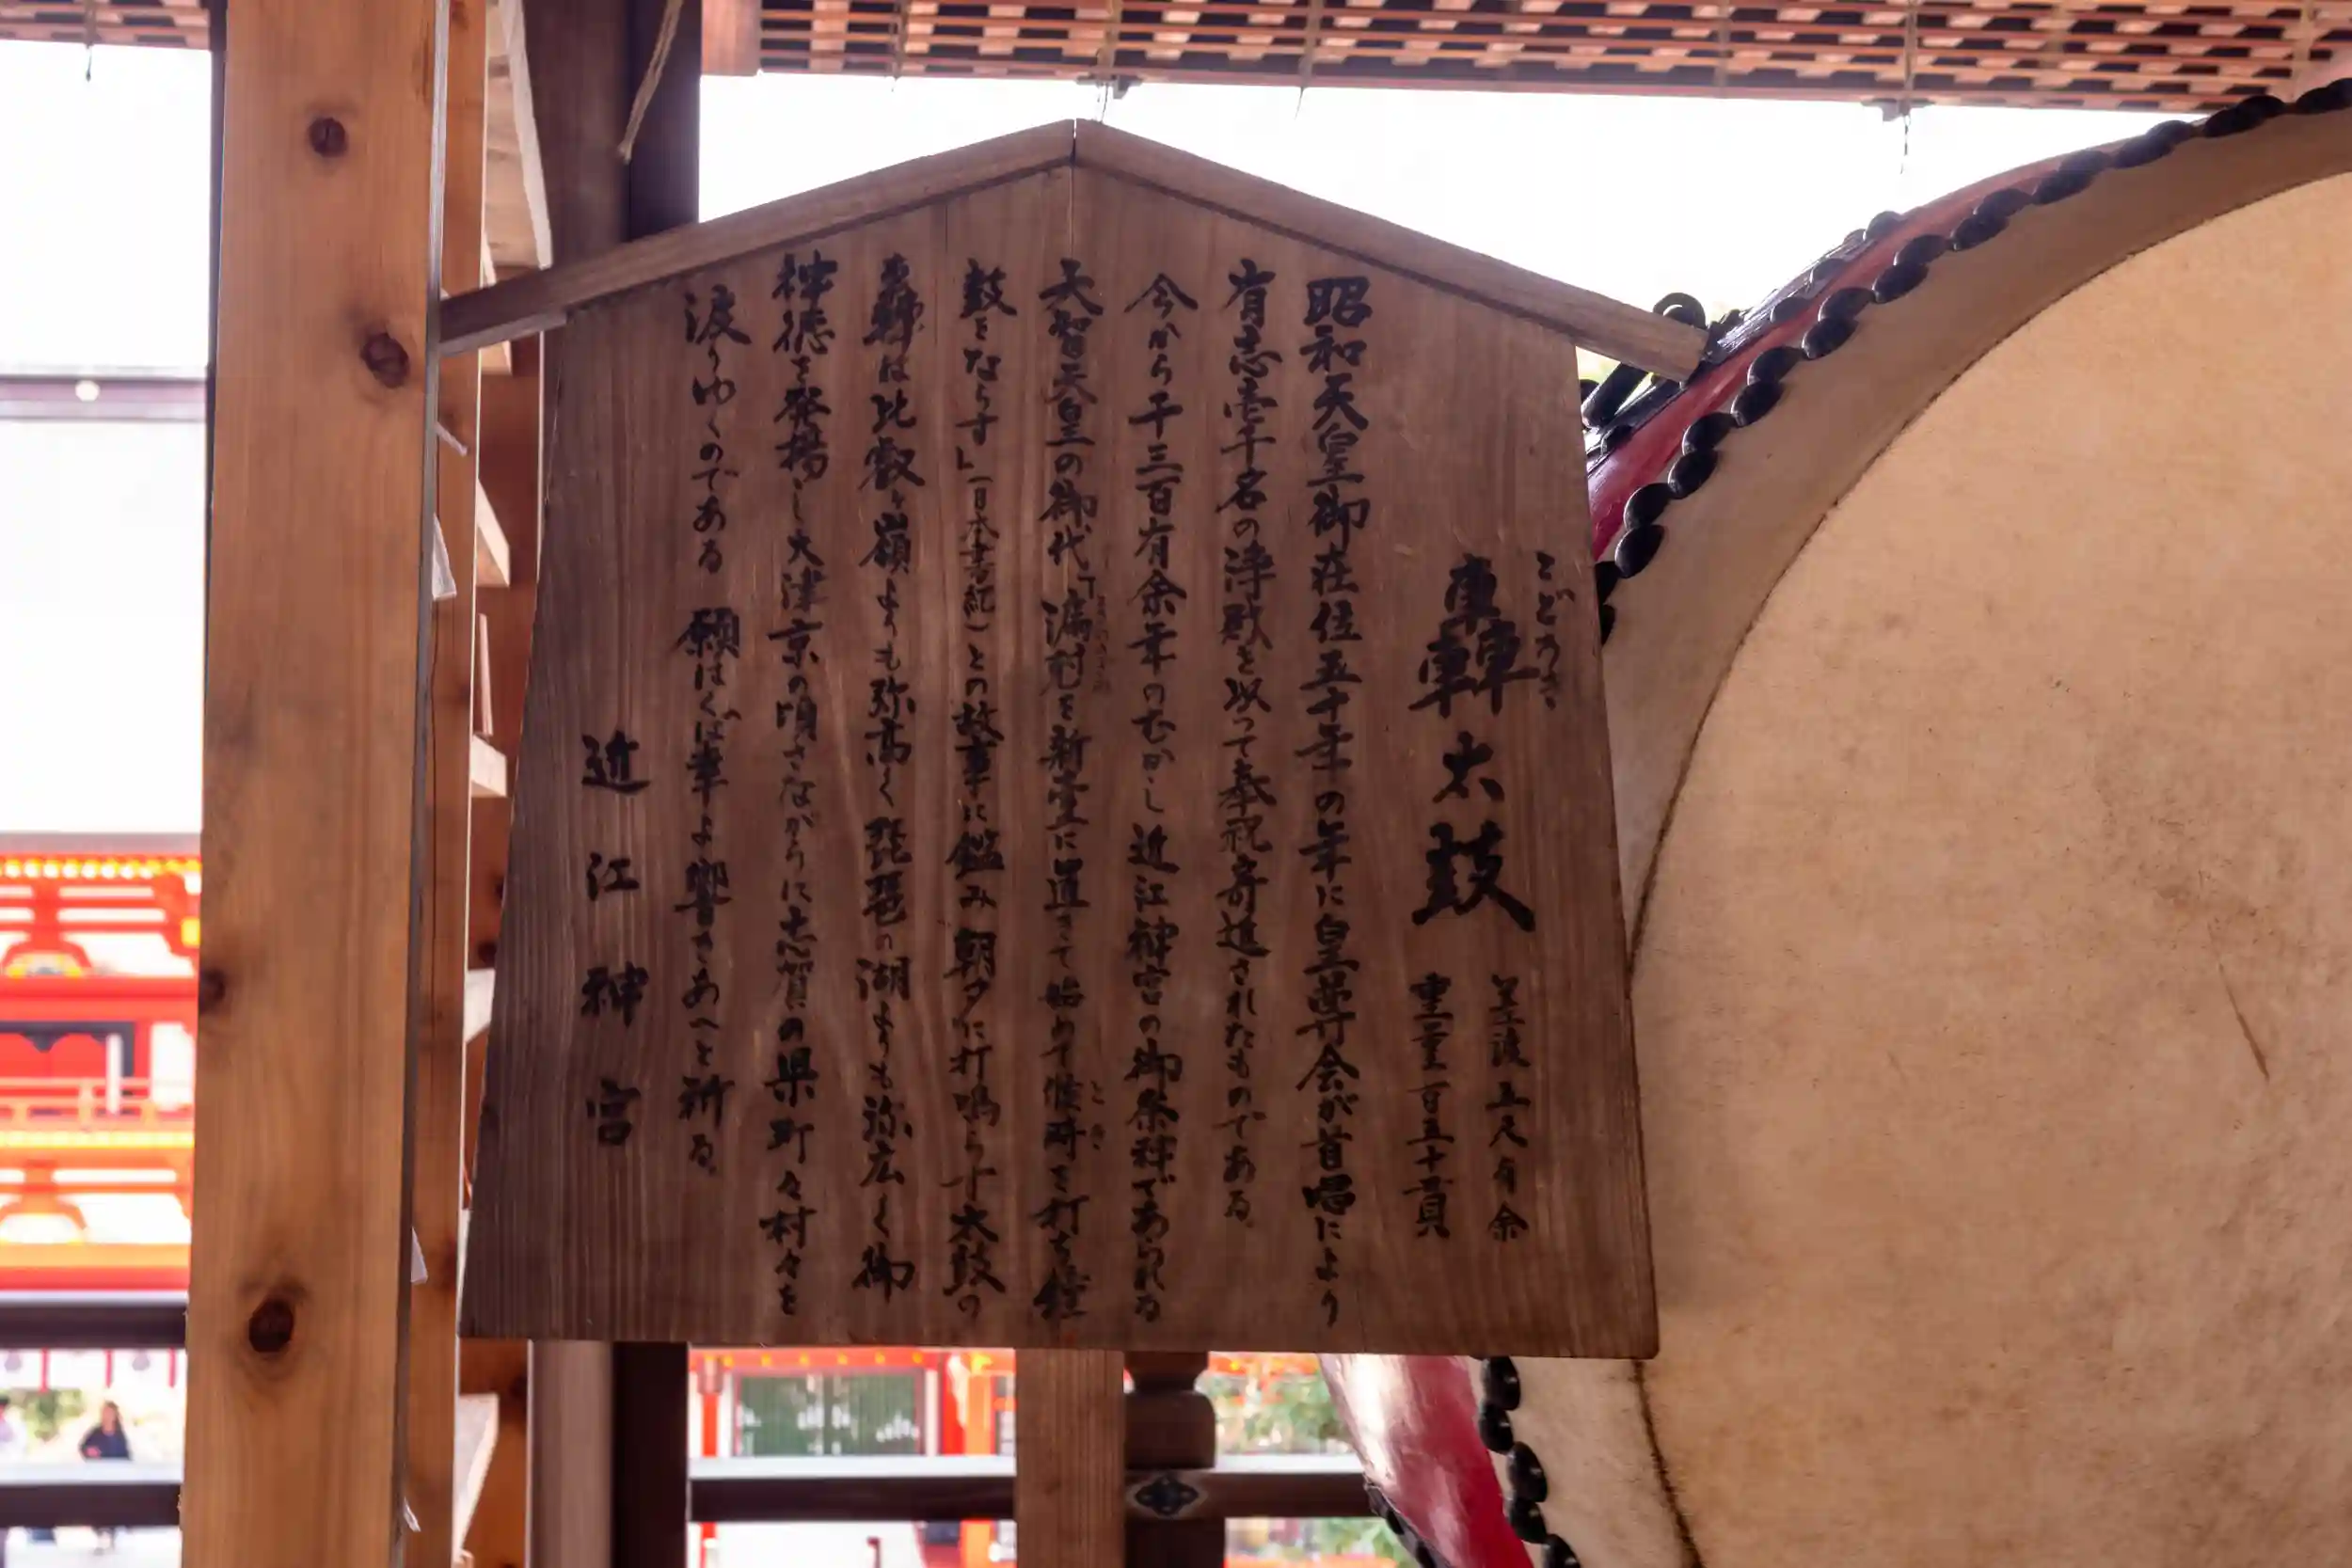 とどろき
轟太鼓
差渡五尺有余
重量百五十貫
昭和天皇御在位五十年の年に皇尊会が首唱により
有志壱千名の浄財を以って奉祝寄進されたものである。
今から千三百有余年のむかし近江神宮の御祭神であられる
天智天皇の御代「漏刻を新臺に置きて始めて候時を打ち鐘
とき
鼓をならす」(日本書紀)との故事に鑑み朝夕に打鳴らす太鼓の
轟は比叡ヶ嶺よりも弥高く琵琶の湖よりも弥広く御
神徳を発揚し大津京の頃さながらに志賀の県町々村々を
渡りゆくのである 願はくば幸よ響きあへと祈る。
近江神宮